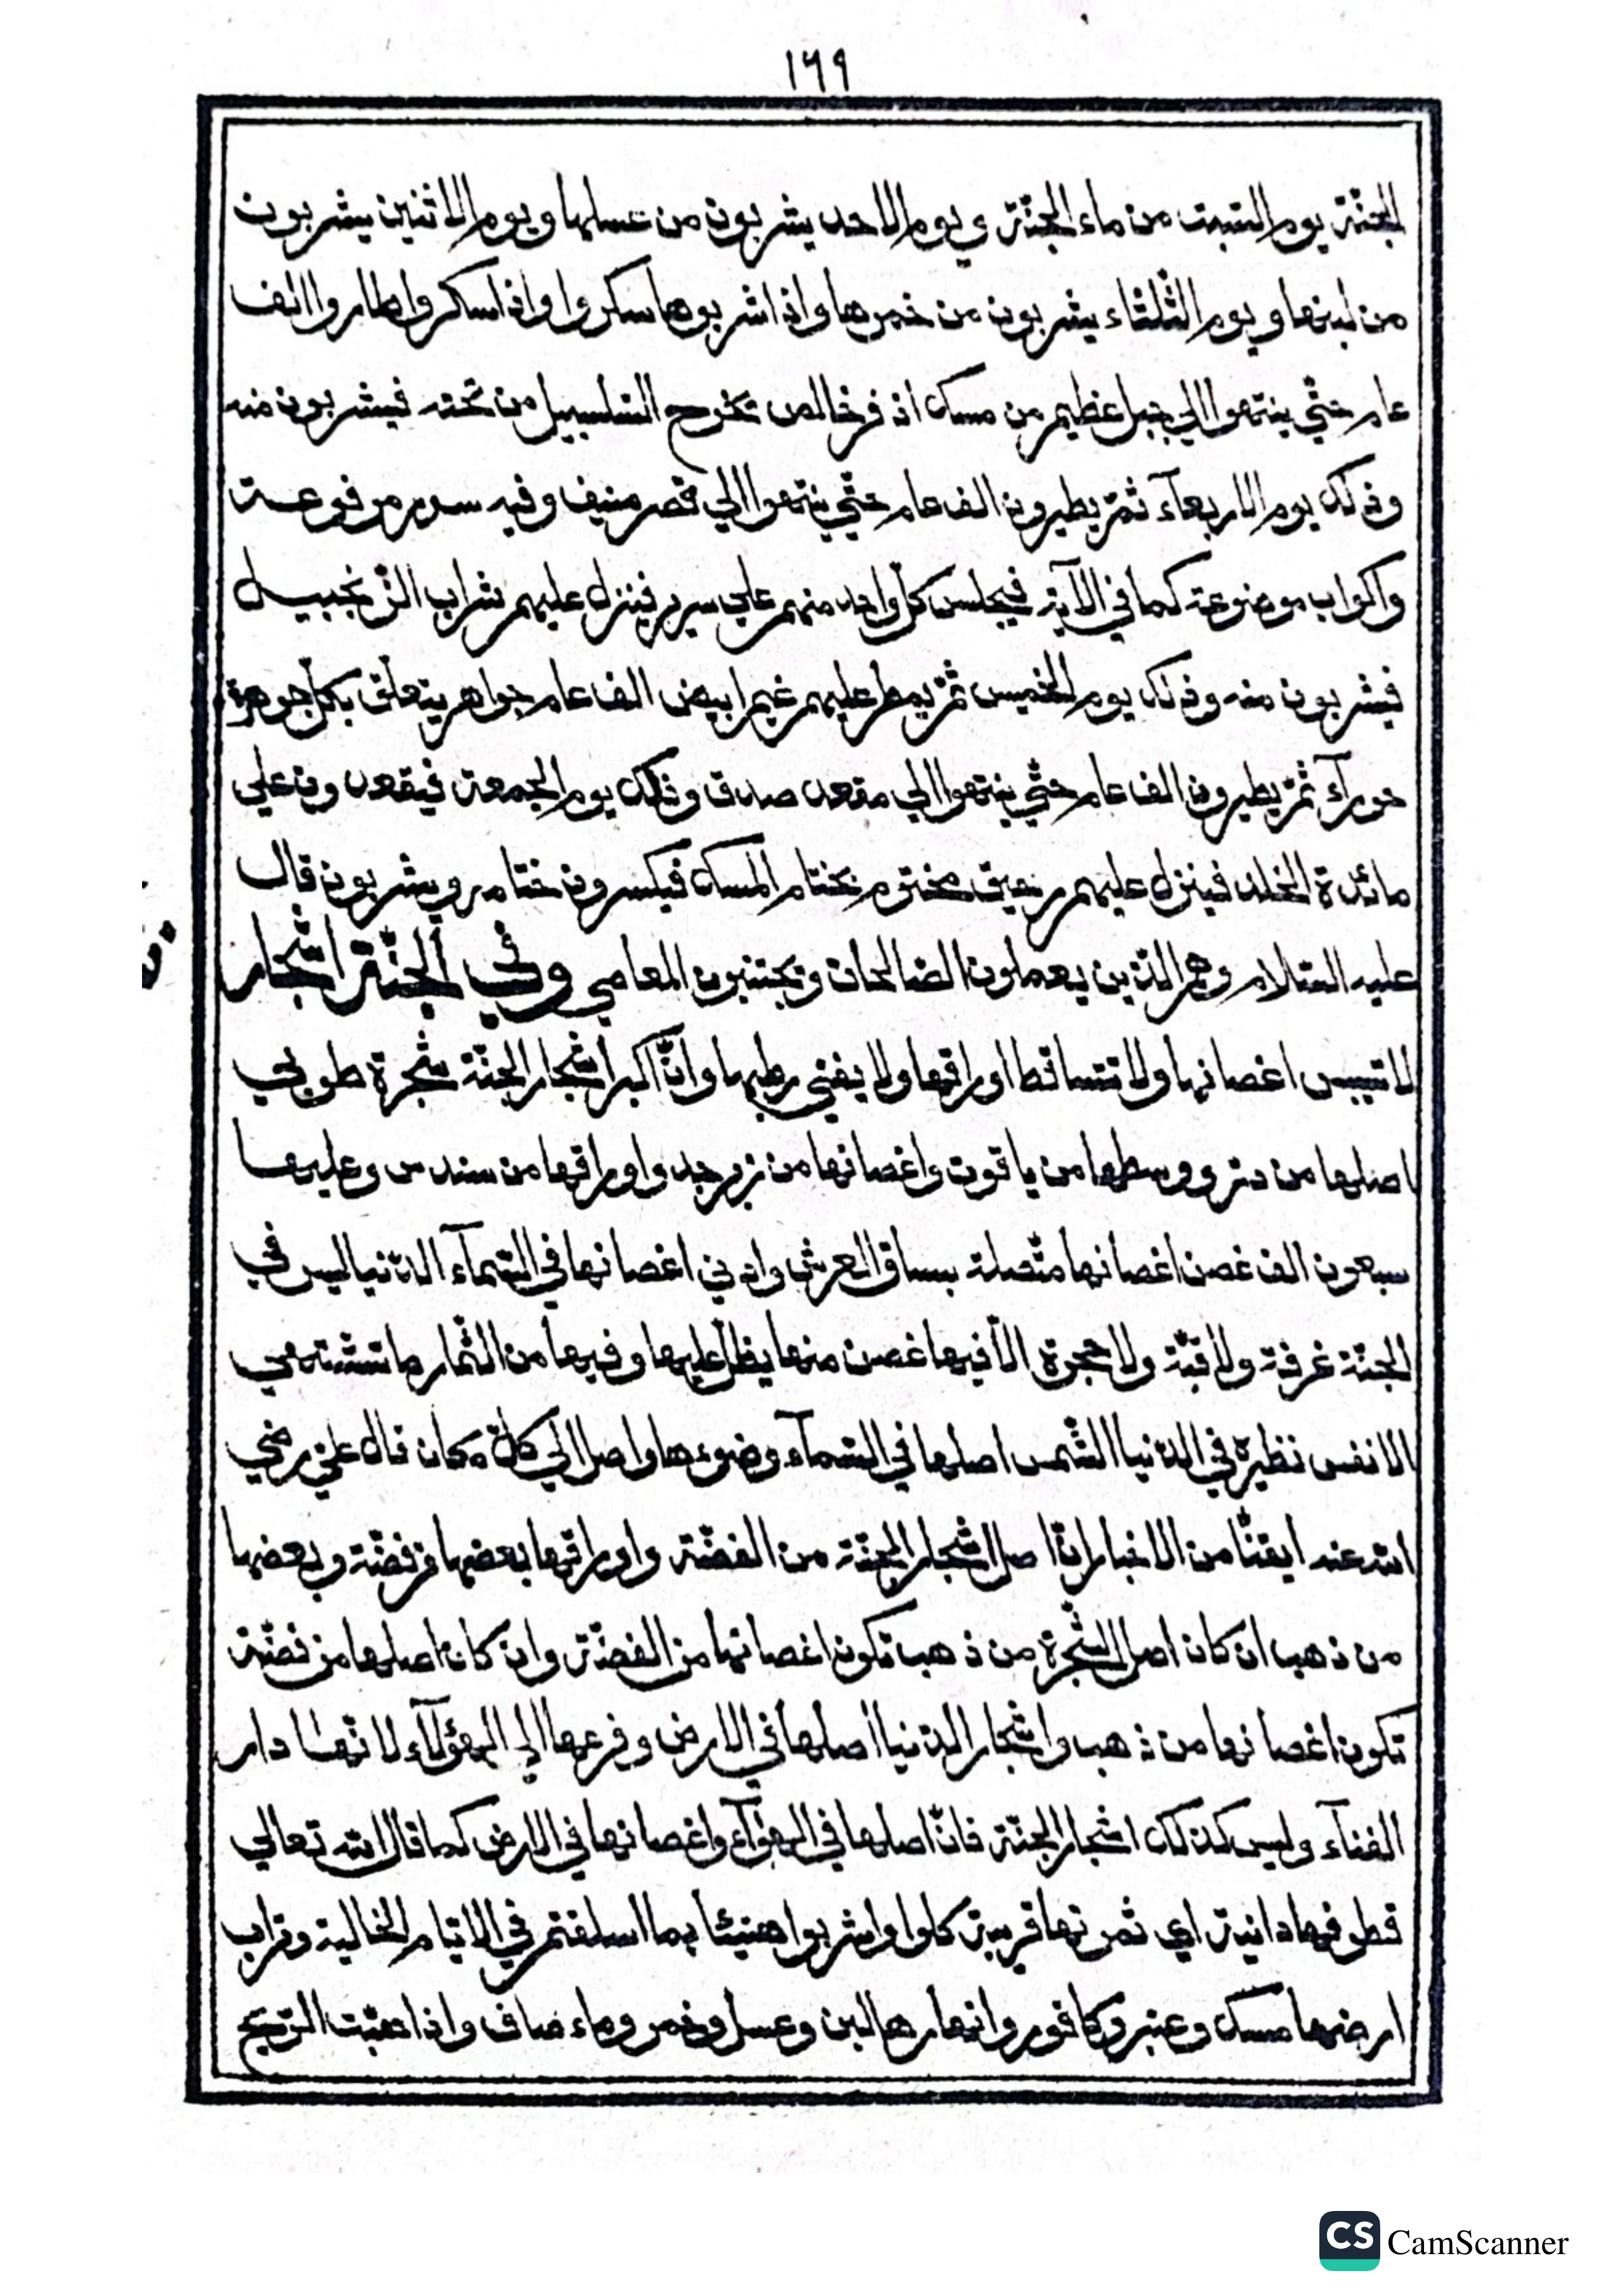 ١٦٩
الجنّة يوم السّبت من ماء الجنّة وي يوم الاحد يشربون من عسلها ويوم الاثنين يشربون
من لبنها ويوم الثّلثاء يشربون من خمرها واذا شربوها سكروا واذا سكروا طاروا الف
عام حتّي ينتهوا الي جبل عظيم من مسك اذفر خالص تخرج السّلسبيل من تحته فيشربون منه
وذلك يوم الاربعآء ثمّ يطيرون الف عام حتّي ينتهوا الي قصر منيف وفيه سرر مرفوعة
واكواب موضوعة كما في الآية فيجلس كلّ واحد منهم علي سرير فينزل عليهم شراب الزّنجبيل
فيشربون منه وذلك يوم الخميس ثمّ يمطر عليهم غيم ابيض الف عام جواهر يتعلّق بكلّ جوهرة
حورآء ثمّ يطيرون الف عام حتّي ينتهوا الي مقعد صدق وذلك يوم الجمعة فيقعدون علي
مائدة الخلد فينزل عليهم رحيق مختوم بختام المسك فيكسرون ختامه ويشربون قال
عليه السّلام وهم الّذين يعملون الصّالحات ويجتنبون المعاصي وفي الجنّة اشجار
لا تيبس اغصانها ولا تتساقط اوراقها ولا يفني رطبها وانّ اكبر اشجار الجنّة شجرة طوبي
اصلها من درّ ووسطها من ياقوت واغصانها من زبرجد واوراقها من سندس وعليها
سبعون الف غصن اغصانها متّصلة بساق العرش وادني اغصانها في السّمآء الدّنيا ليس في
الجنّة غرفة ولا قبّة ولا حجرة الاّ فيها غصن منها يظلّ عليها وفيها من الثّمار ما تشتهي
الانفس نظيره في الدّنيا الشّمس اصلها في السّمآء وضوءها واصل الي كلّ مكان قال عليّ رضي
الله عنه ايقنّا من الاخبار انّ اصل اشجار الجنّة من الفضّة واوراقها بعضها من فضّة وبعضها
من ذهب ان كان اصل الشّجرة من ذهب تكون اغصانها من الفضّة وان كان اصلها من فضّة
تكون اغصانها من ذهب واشجار الدّنيا اصلها في الارض وفرعها الي الهوآء لانّها دار
الفنآء وليس كذلك اشجار الجنّة فانّ اصلها في الهوآء واغصانها في الارض كما قال الله تعالي
قطوفها دانية اي ثمرتها قريبة كلوا واشربوا هنيئا بما اسلفتم في الايّام الخالية وتراب
ارضها مسك وعنبر وكافور وانهارها لبن وعسل وخمر وماء صاف واذا هبّت الرّيح
CS CamScanner